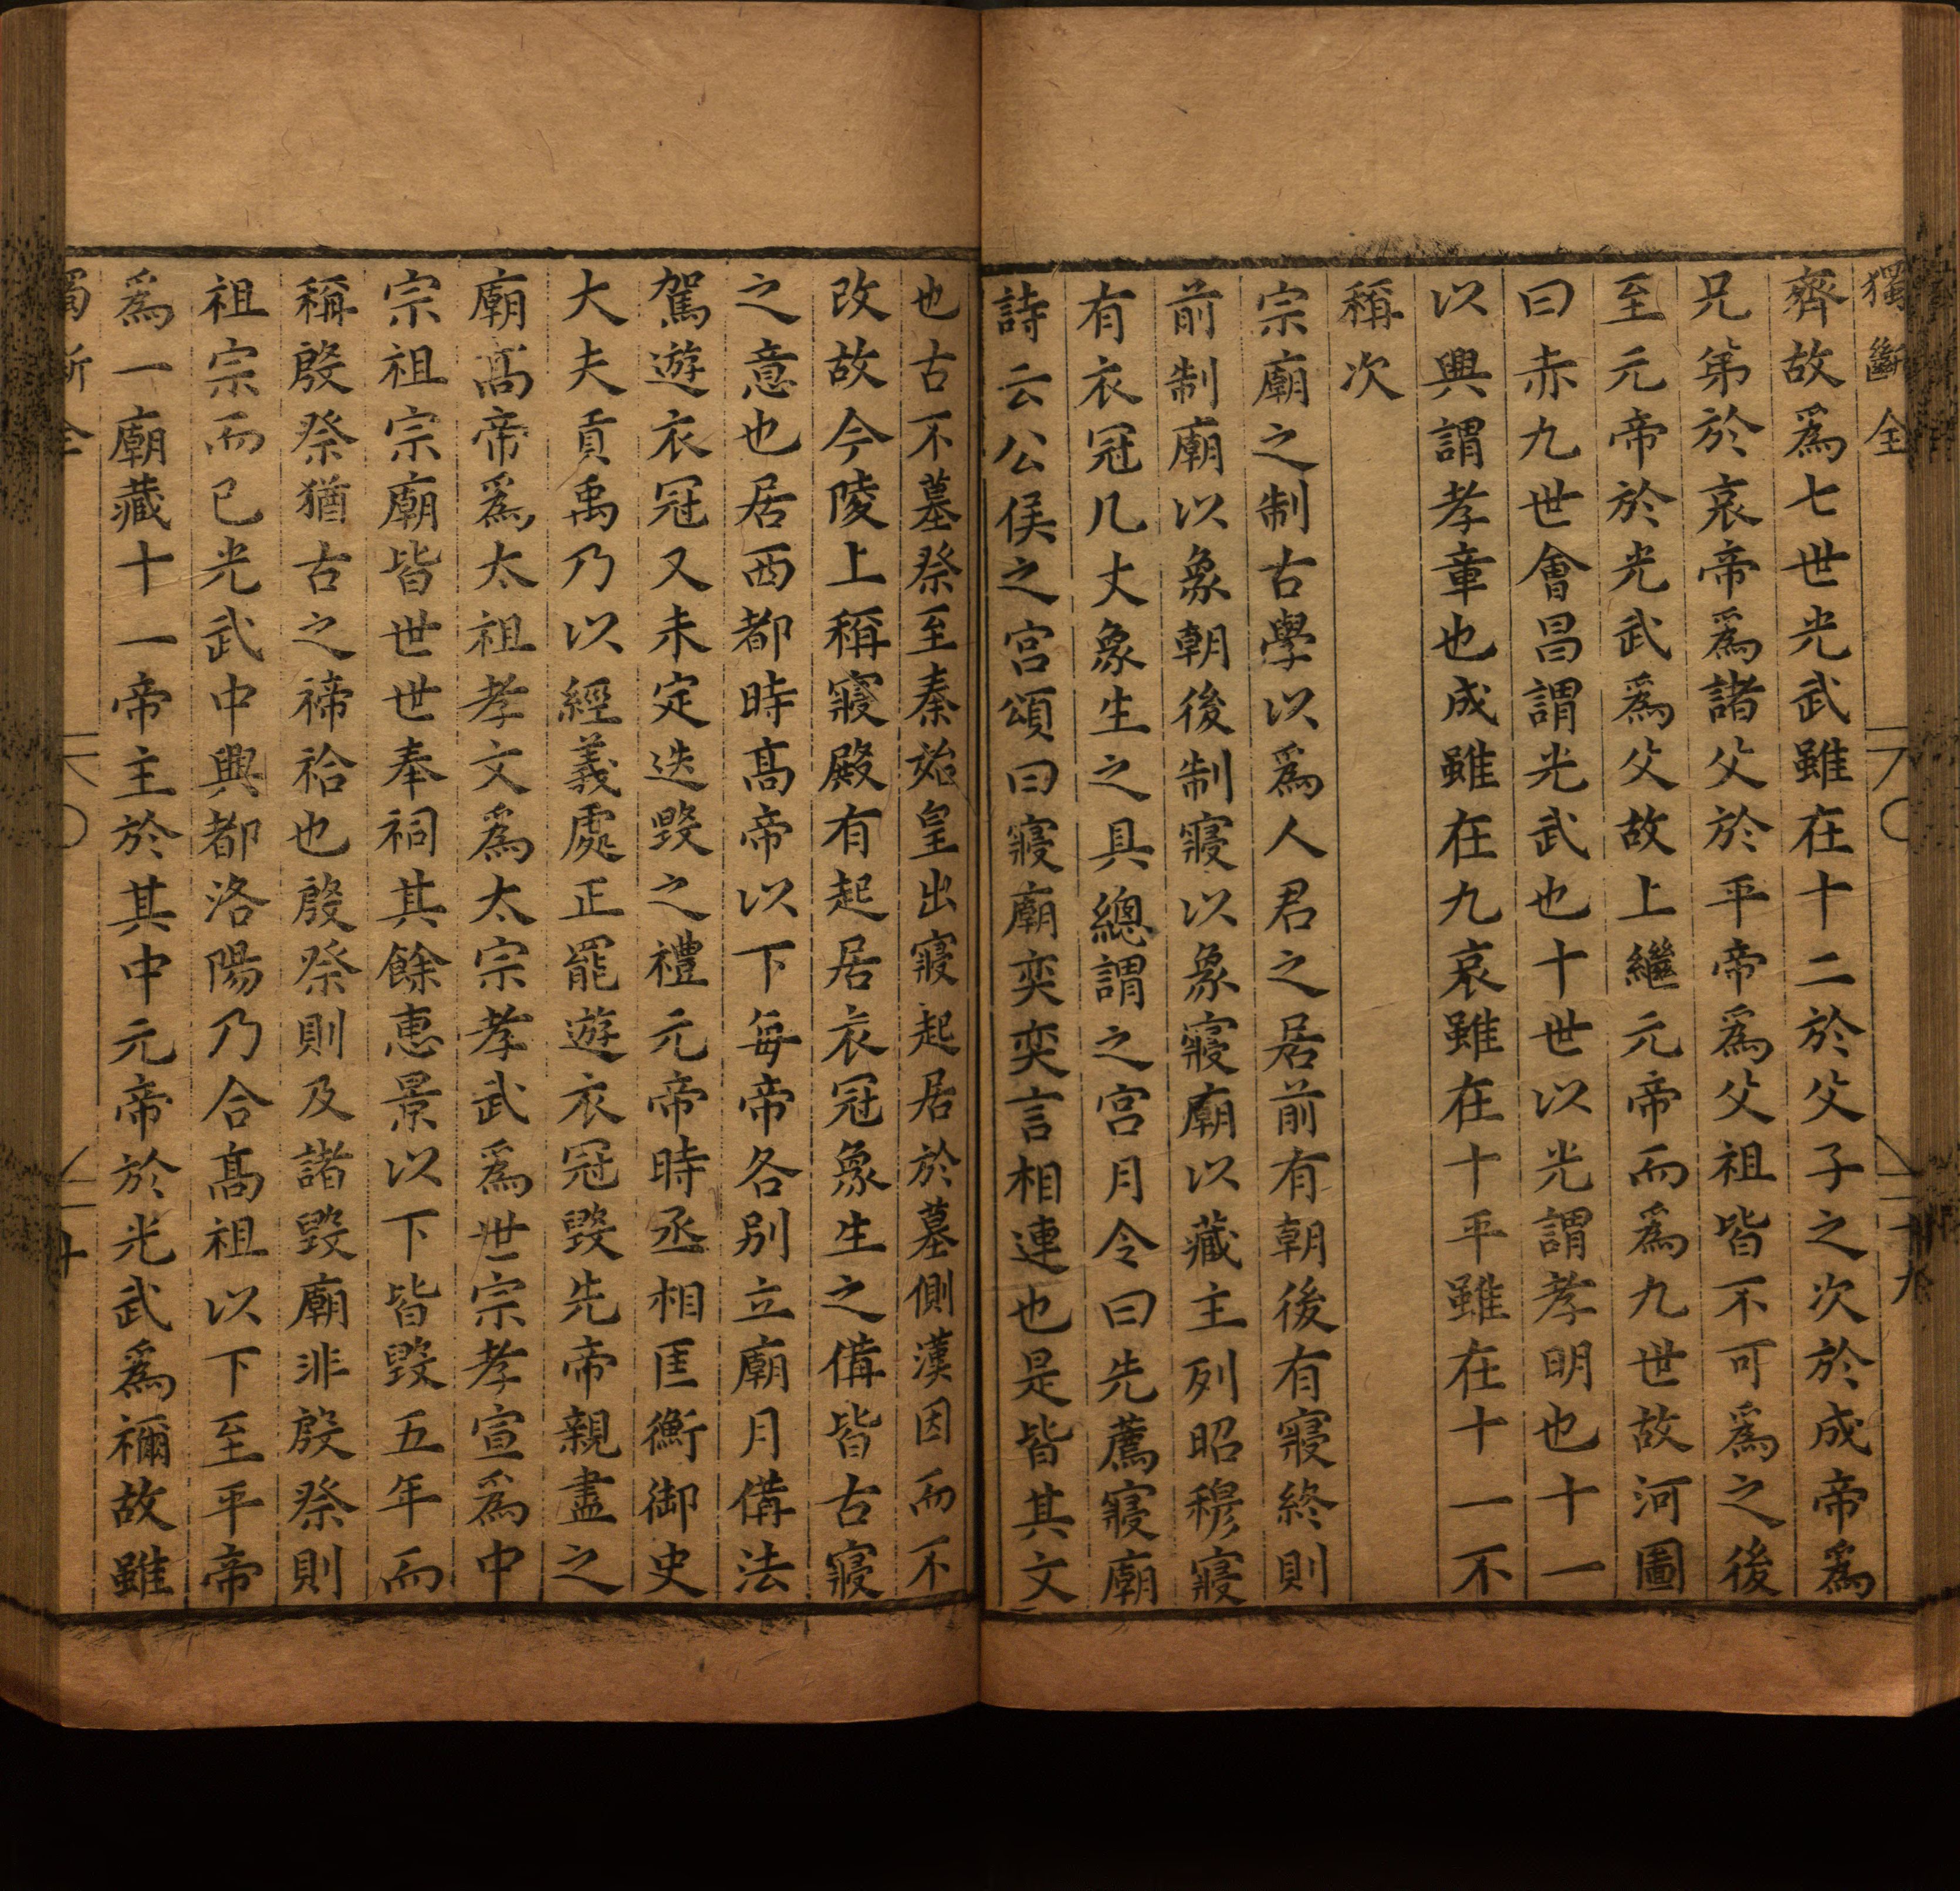 獨斷全
十九
齊故爲七世光武雖在十二於父子之次於成帝爲
兄弟於哀帝爲諸父於平帝爲父祖皆不可爲之後
至元帝於光武爲父故上繼元帝而爲九世故河圖
曰赤九世會昌謂光武也十世以光謂孝明也十一
以興謂孝章也成雖在九哀雖在十平雖在十一不
稱次
宗廟之制古學以爲人君之居前有朝後有寢終則
前制廟以象朝後制寢以象寢廟以藏主列昭穆寢
有衣冠几丈象生之具總謂之宮月令曰先薦寢廟
詩云公侯之宮頌曰寢廟奕奕言相連也是皆其文
也古不墓祭至秦始皇出寢起居於墓側漢因而不
改故今陵上稱寢殿有起居衣冠象生之備皆古寢
之意也居西都時高帝以下每帝各別立廟月備法
駕遊衣冠又未定迭毀之禮元帝時丞相匡衡御史
大夫貢禹乃以經義處正罷遊衣冠毀先帝親盡之
廟高帝爲太祖孝文爲太宗孝武爲世宗孝宣爲中
宗祖宗廟皆世世奉祠其餘惠景以下皆毀五年而
稱殷祭猶古之禘祫也殷祭則及諸毀廟非殷祭則
祖宗而已光武中興都洛陽乃合高祖以下至平帝
爲一廟藏十一帝主於其中元帝於光武爲禰故雖